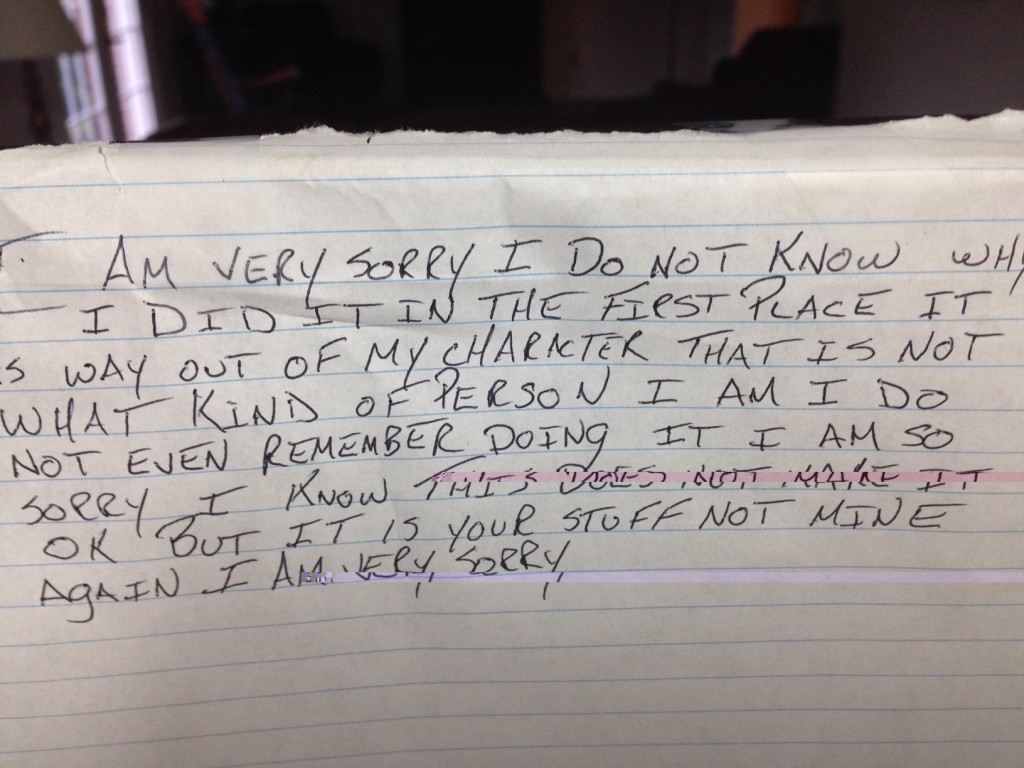 I AM VERY SORRY I DO NOT KNOW WHY
I DID IT IN THE FIRST PLACE IT
IS WAY OUT OF MY CHARACTER THAT IS NOT
WHAT KIND OF PERSON I AM I DO
NOT EVEN REMEMBER DOING IT I AM SO
SORRY I KNOW THIS DOES NOT MAKE IT
OK BUT IT IS YOUR STUFF NOT MINE
AGAIN I AM VERY SORRY